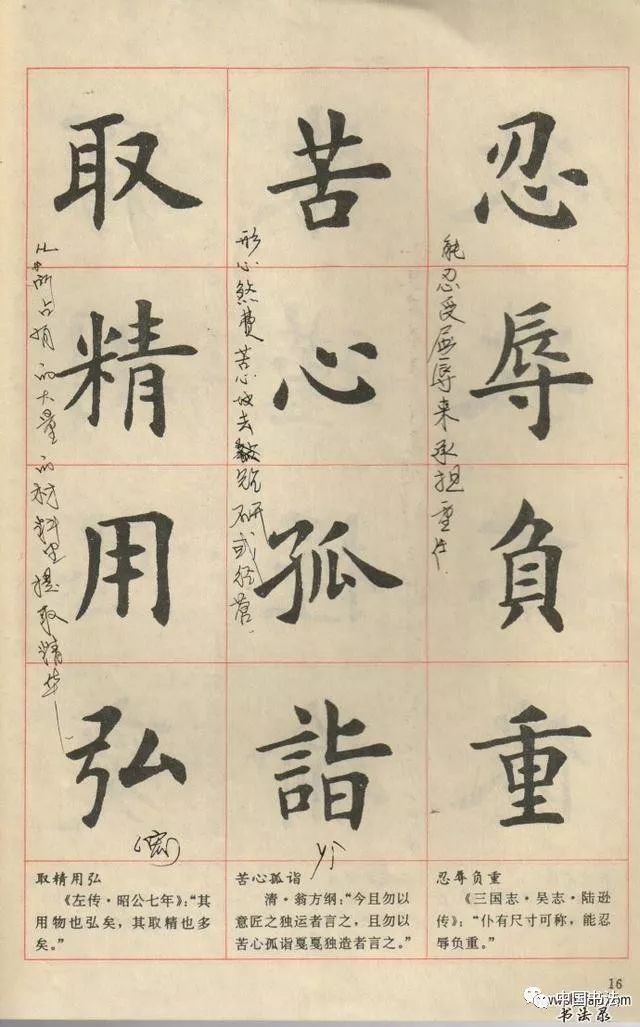 忍辱負重
能忍受屈辱来承担重任.
苦心孤詣
煞费苦心地去钻研或经营.
yì
取精用弘
从所占有的大量的材料里提取精华.
(宏)
忍辱负重
《三国志·吴志·陆逊
传》：“仆有尺寸可称，能忍
辱负重。”
苦心孤诣
清·翁方纲：“今且勿以
意匠之独运者言之，且勿以
苦心孤诣戛戛独造者言之。”
取精用弘
《左传·昭公七年》：“其
用物也弘矣，其取精也多
矣。”
16
中国书法
书法录